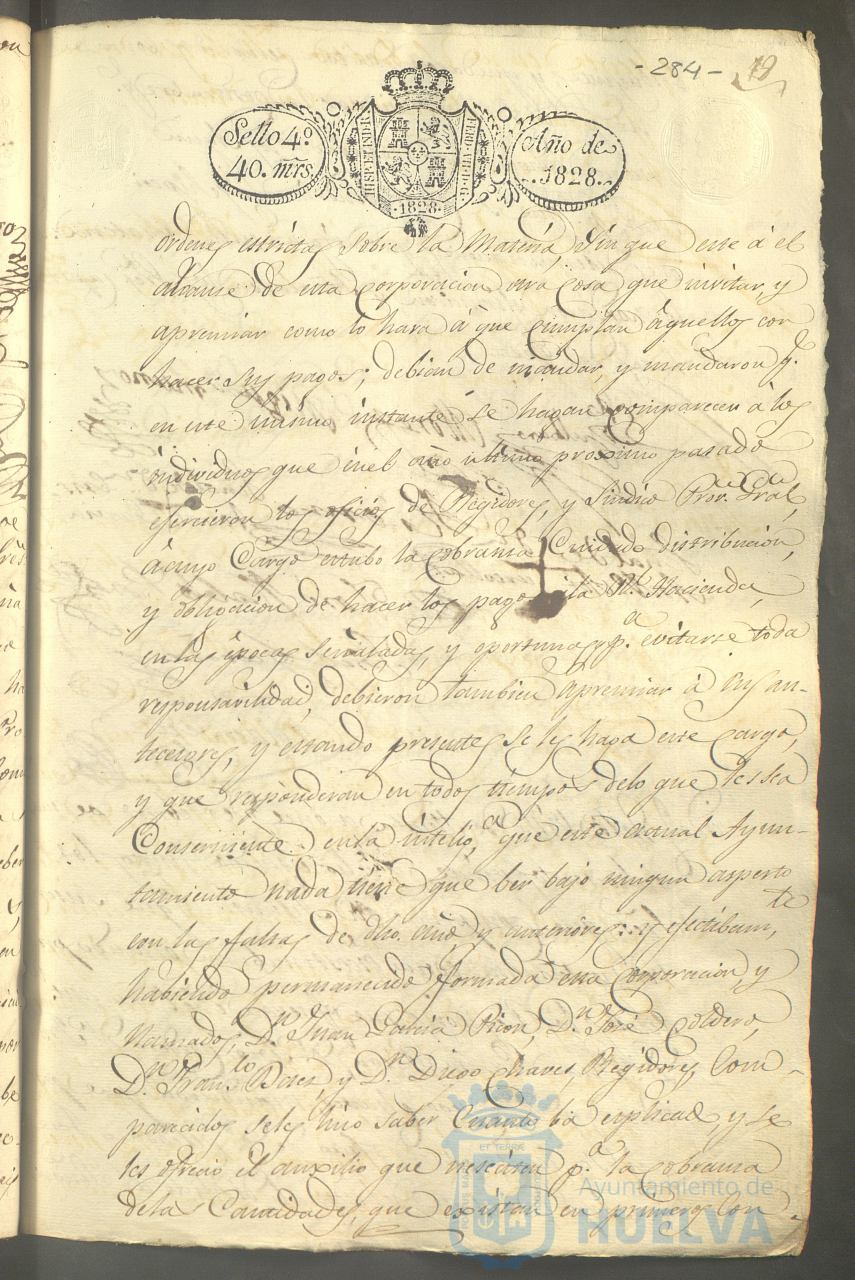 - 284 - 19
Sello 4.º
40. mrs.
HISP. ET IND. R
FERD. VII. D. G.
·1828·
Año de
1828.
órdenes estrictas sobre la Materia, sin que este á el
alcanse de esta Corporacion otra Cosa que invitar, y
apremiar como lo hara á que Cumplan áquellos con
hacer sus pagos; debian de mandar, y mandaron q.e
en este mismo instante se hagan comparecer á los
individuos que en el año ultimo proximo pasado
ejercieron los oficios de Regidores, y Sindico Pror. Gral,
á cuyo Cargo estubo la Cobransa Cuidado distribucion,
y obligacion de hacer los pagos á la Rl. Hacienda,
en las épocas señaladas, y oportunas, y p.a evitarse toda
responsavilidad, debieron tambien apremiar á sus an-
tecesores, y estando presentes se les haga este Cargo,
y que responderan en todos tiempos de lo que les sea
Conserniente en la inteligª que este actual Ayun-
tamiento nada tiene que ber bajo ningun aspecto
con las faltas de dho. año, y anteriores: y efectibamte,
habiendo permanecido formada esta Corporacion, y
llamados, Dn. Juan Garcia Picon, Dn. José Coldero,
Dn. Franco Poses, y Dn. Diego Chaves, Regidores, Com-
parecidos se les hizo saber Cuanto ba esplicado, y se
les ofrecio el auxilio que nesesiten p.a la Cobransa
de las Cantidades, que existan en primeros Con-
PORTUS MARIS
ET TERRE
Ayuntamiento de
HUELVA